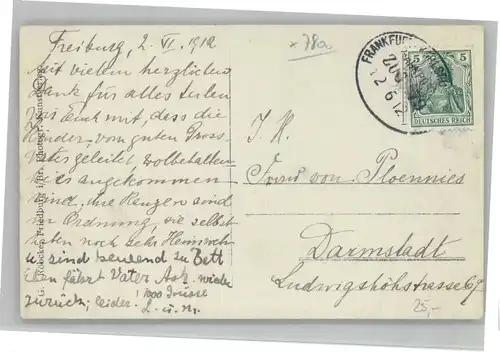 Freiburg, 2. VI. 1912
Mit vielem herzlichen
Dank für alles teilen
das Euch mit, dass die
Kinder, vom guten Gross-
vater geleitet, wolbehalten
angekommen
sind, ihre sind
in Ordnung, sie selbst
haben noch sehr Heimweh
u. sind tausend zu Bett
Eben fährt Vater wieder
zurück, leider. 1000 Grüsse
L. u. M.
x 78a
FRANKFURT
ZUG
2 6 12
5 5
DEUTSCHES REICH
I. H.
Frau von Ploennies
Darmstadt
Ludwigshöhstrasse 67
25,-